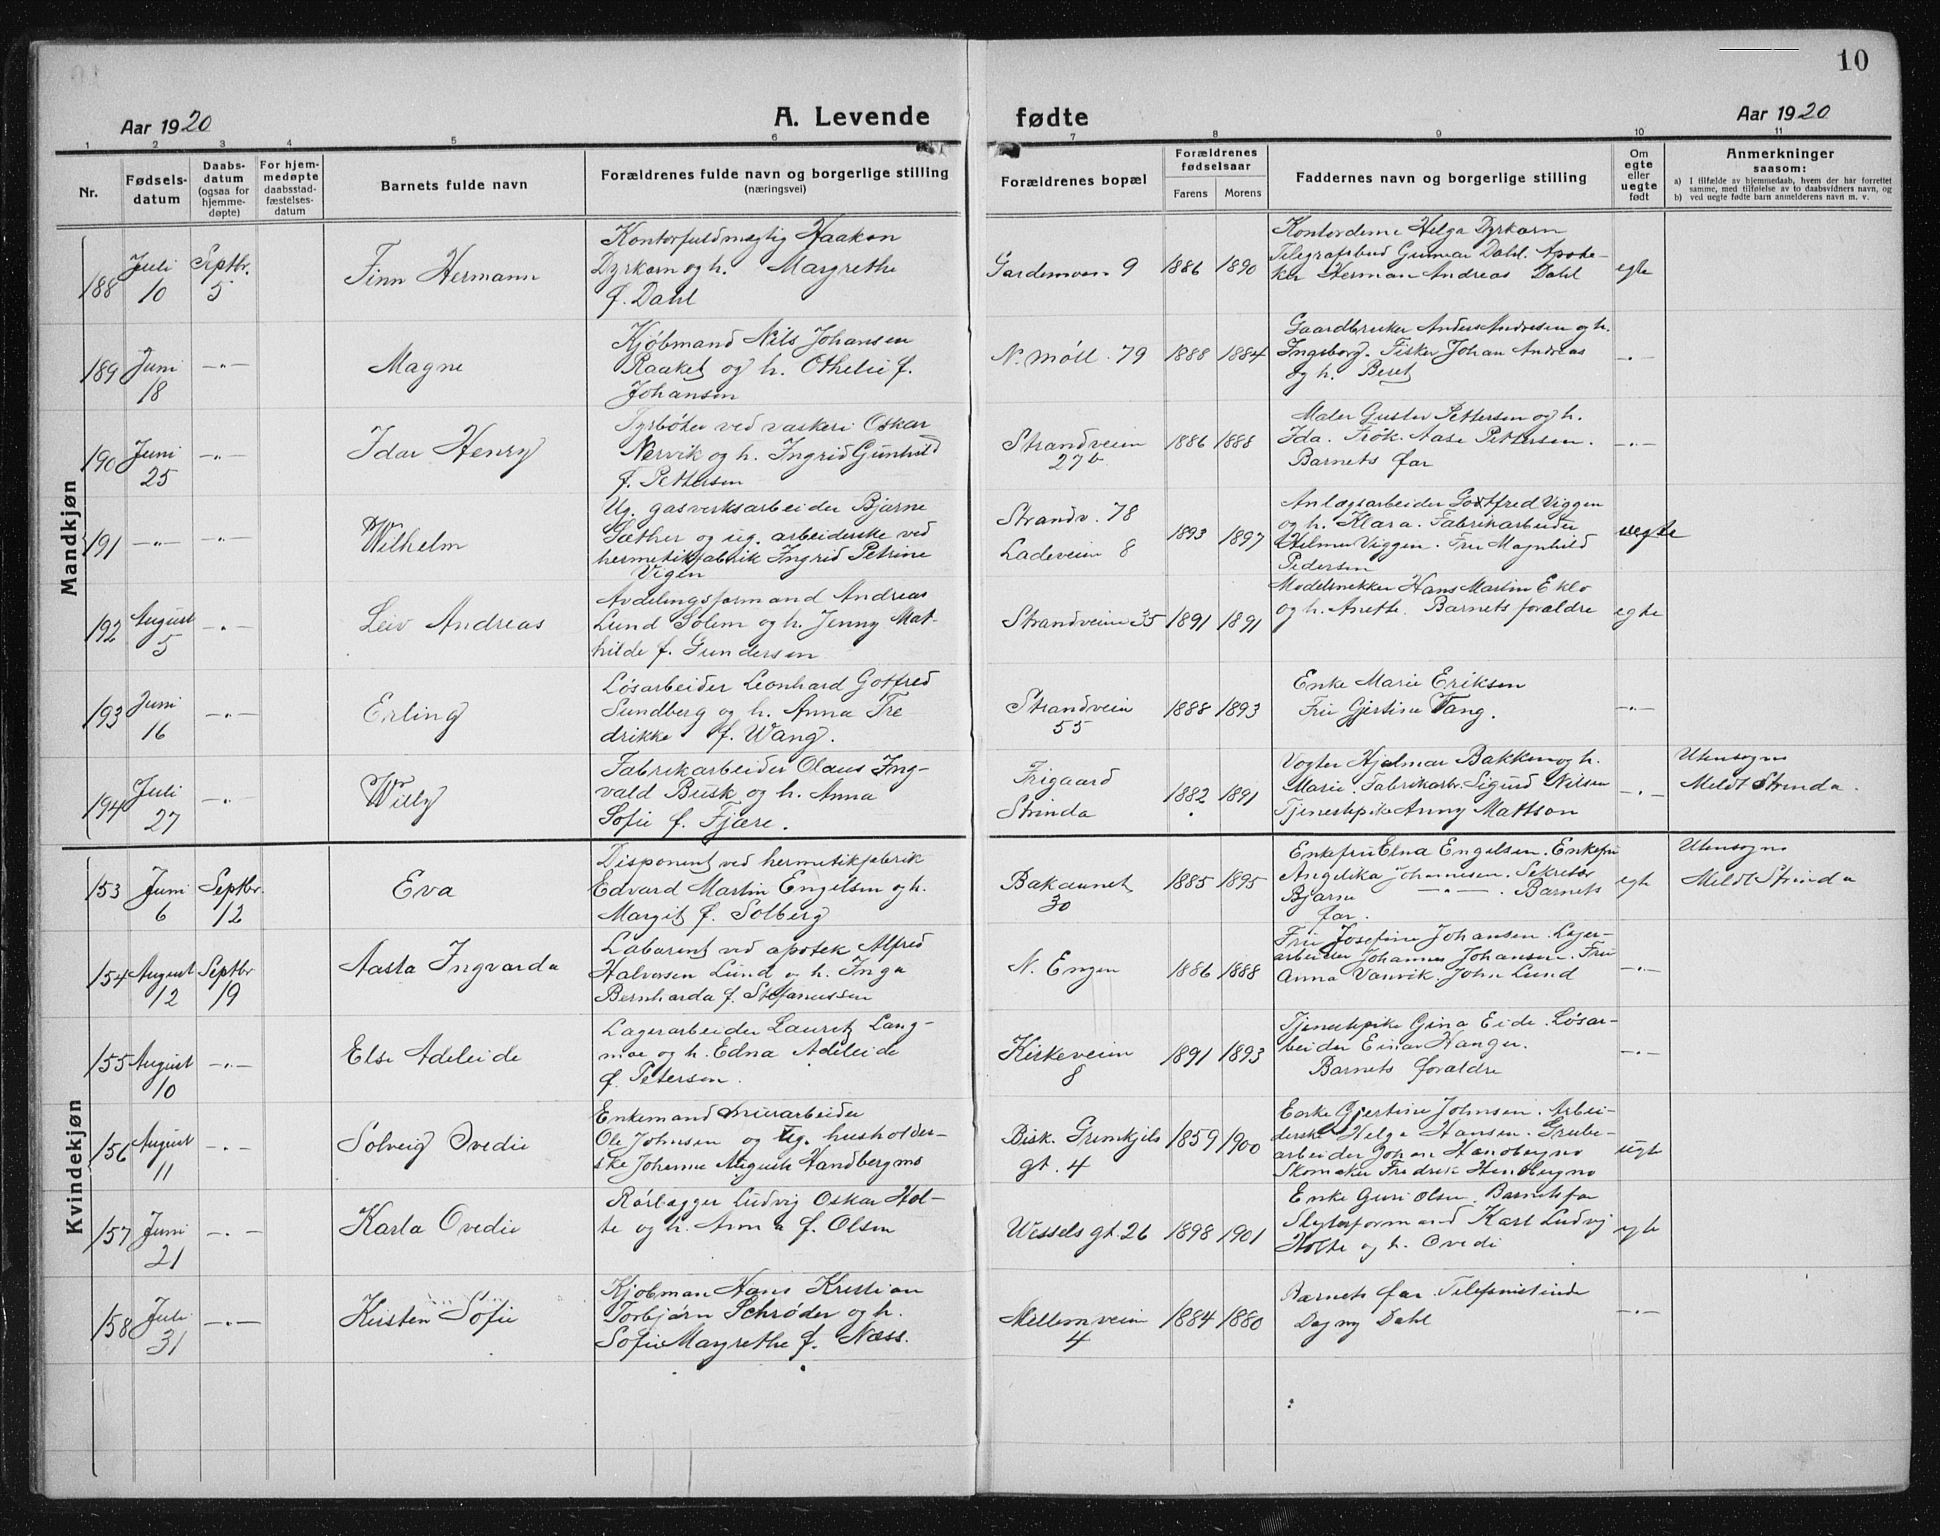 10
Aar 1920
A. Levende fødte
Aar 1920
1 2 3 4 5 6 7 8 9 10 11
Nr.
Fødsels-
datum
Daabs-
datum
(ogsaa for
hjemme-
døpte)
For hjem-
medøpte
daabsstad-
fæstelses-
datum
Barnets fulde navn
Forældrenes fulde navn og borgerlige stilling
(næringsvei)
Forældrenes bopæl
Forældrenes
fødselsaar
Farens Morens
Faddernes navn og borgerlige stilling
Om
egte
eller
uegte
født
Anmerkninger
saasom:
a) I tilfælde av hjemmedaab, hvem der har forrettet
samme, med tilføielse av to daabsvidners navn, og
b) ved uegte fødte barn anmelderens navn m. v.
Mandkjøn
188 Juli 10 Septbr. 5
Finn Hermann
Kontorfuldmægtig Haakon
Dyrkorn og h. Margrethe
f. Dahl
9 1886 1890
Kontordame Helga Dyrkorn
Telegrafbud Gunnar Dahl. Apothe-
ker Herman Andreas Dahl
egte
189 Juni 18 -"-
Magne
Kjøbmand Nils Johansen
Raaket og h. Othelie f.
Johansen
N. Møll. 79 1888 1884
Gaardbruker Anders Andresen og h.
Ingeborg. Fisker Johan Andreas
og h. Beret
-"-
190 Juni 25 -"-
Idar Henry
Fyrbøter ved vaskeri Oskar
Nervik og h. Ingrid Gunhild
f. Pettersen
Strandveien
27b 1886 1888
Maler Gustav Pettersen og h.
Ida. Frøk. Aase Pettersen.
Barnets far
-"-
191 -"- -"-
Wilhelm
Ug. gasverksarbeider Bjarne
Sæther og ug. arbeiderske ved
hermetikfabrik Ingrid Petrine
Vigen
Strandv. 78
Ladeveien 8 1893 1897
Anlægsarbeider Gotfred Viggen
og h. Klara. Fabrikarbeider
Hilmar Viggen. Fru Magnhild
Pedersen
uegte
192 August 5 -"-
Leiv Andreas
Avdelingsformand Andreas
Lund Solem og h. Jenny Mat-
hilde f. Gundersen
Strandveien 35 1891 1891
Modelsnekker Hans Martin Eklo
og h. Anette. Barnets foraldre
egte
193 Juni 16 -"-
Erling
Løsarbeider Leonhard Gotfred
Sundberg og h. Anna Fre
drikke f. Wang.
Strandveien
55 1888 1893
Enke Marie Eriksen
Fru Gjertine Vang.
-"-
194 Juli 27 -"-
Willy
Fabrikarbeider Olaus Ing-
vald Busk og h. Anna
Sofie f. Fjære.
Frigaard
Strinda 1882 1891
Vogter Hjalmar Bakken og h.
Marie. Fabrikarb. Sigurd Nilsen
Tjenestepike Anny Mattson
-"-
Utensogns
Meldt Strinda.
Kvindekjøn
153 Juni 6 Septbr. 12
Eva
Disponent ved hermetikfabrik
Edvard Martin Engelsen og h.
Margit f. Solberg
Bakaunet
30 1885 1895
Enkefru Elna Engelsen. Enkefru
Angelika Johannesen. Sekretær
Bjarne -"- . Barnets
far.
egte
Utensogns
Meldt Strinda
154 August 12 Septbr 19
Aasta Ingvarda
Laborent ved apotek Alfred
Halvorsen Lund og h. Inga
Bernharda f. Stefanussen
N. Engen 1886 1888
Fru Josefine Johansen. Lager-
arbeider Johannes Johansen. Fru
Anna Vanvik. John Lund
-"-
155 August 10 -"-
Else Adeleide
Lagerarbeider Laurit Lang-
moe og h. Edna Adeleide
f. Petersen.
Kirkeveien
8 1891 1893
Tjenestepike Gina Eide. Løsar-
beider Einar Hanger.
Barnets foraldre
-"-
156 August 11 -"-
Solveig Ovedie
Enkemand murarbeider
Ole Johnsen og ug. husholder-
ske Johanne Auguste Handbergmo
Bisk. Grimkjils
gt. 4 1859 1900
Enke Gjertine Johnsen. Arbei-
derske Helga Hansen. Grube-
arbeider Johan Handbergmo
Skomaker Fredrik Handbergmo
ugte
157 Juni 21 -"-
Karla Ovedie
Rørlægger Ludvig Oskar Hol-
te og h. Anna f. Olsen
Wessels gt. 26 1898 1901
Enke Guri Olsen. Barnets far
Karl Ludvig
Holte og h. Ovedi
egte
158 Juli 31 -"-
Kirsten Sofie
Kjøbman Hans Kristian
Torbjørn Schrøder og h.
Sofie Margrethe f. Næss.
Mellemveien
4 1884 1880
Barnets far. Telefonistinde
Dagny Dahl
-"-